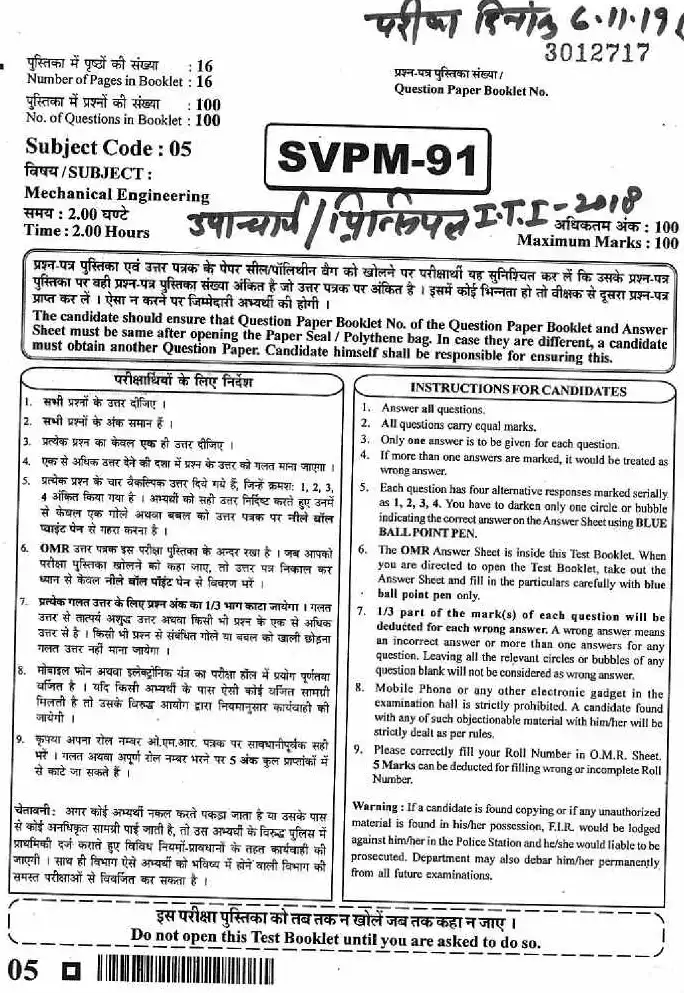 परीक्षा दिनांक 6.11.19
3012717
पुस्तिका में पृष्ठों की संख्या : 16
Number of Pages in Booklet : 16
पुस्तिका में प्रश्नों की संख्या : 100
No. of Questions in Booklet : 100
प्रश्न-पत्र पुस्तिका संख्या /
Question Paper Booklet No.
Subject Code : 05
विषय / SUBJECT :
Mechanical Engineering
समय : 2.00 घण्टे
Time : 2.00 Hours
SVPM-91
उपाचार्य / प्रिन्सिपल I.T.I - 2018
अधिकतम अंक : 100
Maximum Marks : 100
प्रश्न-पत्र पुस्तिका एवं उत्तर पत्रक के पेपर सील/पॉलिथीन बैग को खोलने पर परीक्षार्थी यह सुनिश्चित कर लें कि उसके प्रश्न-पत्र
पुस्तिका पर वही प्रश्न-पत्र पुस्तिका संख्या अंकित है जो उत्तर पत्रक पर अंकित है । इसमें कोई भिन्नता हो तो वीक्षक से दूसरा प्रश्न-पत्र
प्राप्त कर लें । ऐसा न करने पर जिम्मेदारी अभ्यर्थी की होगी ।
The candidate should ensure that Question Paper Booklet No. of the Question Paper Booklet and Answer
Sheet must be same after opening the Paper Seal / Polythene bag. In case they are different, a candidate
must obtain another Question Paper. Candidate himself shall be responsible for ensuring this.
परीक्षार्थियों के लिए निर्देश
1. सभी प्रश्नों के उत्तर दीजिए ।
2. सभी प्रश्नों के अंक समान हैं ।
3. प्रत्येक प्रश्न का केवल एक ही उत्तर दीजिए ।
4. एक से अधिक उत्तर देने की दशा में प्रश्न के उत्तर को गलत माना जाएगा ।
5. प्रत्येक प्रश्न के चार वैकल्पिक उत्तर दिये गये हैं, जिन्हें क्रमशः 1, 2, 3,
4 अंकित किया गया है । अभ्यर्थी को सही उत्तर निर्दिष्ट करते हुए उनमें
से केवल एक गोले अथवा बबल को उत्तर पत्रक पर नीले बॉल
प्वाइंट पेन से गहरा करना है ।
6. OMR उत्तर पत्रक इस परीक्षा पुस्तिका के अन्दर रखा है । जब आपको
परीक्षा पुस्तिका खोलने को कहा जाए, तो उत्तर पत्र निकाल कर
ध्यान से केवल नीले बॉल पॉइंट पेन से विवरण भरें ।
7. प्रत्येक गलत उत्तर के लिए प्रश्न अंक का 1/3 भाग काटा जायेगा । गलत
उत्तर से तात्पर्य अशुद्ध उत्तर अथवा किसी भी प्रश्न के एक से अधिक
उत्तर से है । किसी भी प्रश्न से संबंधित गोले या बबल को खाली छोड़ना
गलत उत्तर नहीं माना जायेगा ।
8. मोबाइल फोन अथवा इलेक्ट्रोनिक यंत्र का परीक्षा हॉल में प्रयोग पूर्णतया
वर्जित है । यदि किसी अभ्यर्थी के पास ऐसी कोई वर्जित सामग्री
मिलती है तो उसके विरुद्ध आयोग द्वारा नियमानुसार कार्यवाही की
जायेगी ।
9. कृपया अपना रोल नम्बर ओ.एम.आर. पत्रक पर सावधानीपूर्वक सही
भरें । गलत अथवा अपूर्ण रोल नम्बर भरने पर 5 अंक कुल प्राप्तांकों में
से काटे जा सकते हैं ।
चेतावनी : अगर कोई अभ्यर्थी नकल करते पकड़ा जाता है या उसके पास
से कोई अनधिकृत सामग्री पाई जाती है, तो उस अभ्यर्थी के विरुद्ध पुलिस में
प्राथमिकी दर्ज कराते हुए विविध नियमों-प्रावधानों के तहत कार्यवाही की
जाएगी । साथ ही विभाग ऐसे अभ्यर्थी को भविष्य में होने वाली विभाग की
समस्त परीक्षाओं से विवर्जित कर सकता है ।
INSTRUCTIONS FOR CANDIDATES
1. Answer all questions.
2. All questions carry equal marks.
3. Only one answer is to be given for each question.
4. If more than one answers are marked, it would be treated as
wrong answer.
5. Each question has four alternative responses marked serially
as 1, 2, 3, 4. You have to darken only one circle or bubble
indicating the correct answer on the Answer Sheet using BLUE
BALL POINT PEN.
6. The OMR Answer Sheet is inside this Test Booklet. When
you are directed to open the Test Booklet, take out the
Answer Sheet and fill in the particulars carefully with blue
ball point pen only.
7. 1/3 part of the mark(s) of each question will be
deducted for each wrong answer. A wrong answer means
an incorrect answer or more than one answers for any
question. Leaving all the relevant circles or bubbles of any
question blank will not be considered as wrong answer.
8. Mobile Phone or any other electronic gadget in the
examination hall is strictly prohibited. A candidate found
with any of such objectionable material with him/her will be
strictly dealt as per rules.
9. Please correctly fill your Roll Number in O.M.R. Sheet.
5 Marks can be deducted for filling wrong or incomplete Roll
Number.
Warning : If a candidate is found copying or if any unauthorized
material is found in his/her possession, F.I.R. would be lodged
against him/her in the Police Station and he/she would liable to be
prosecuted. Department may also debar him/her permanently
from all future examinations.
इस परीक्षा पुस्तिका को तब तक न खोलें जब तक कहा न जाए ।
Do not open this Test Booklet until you are asked to do so.
05